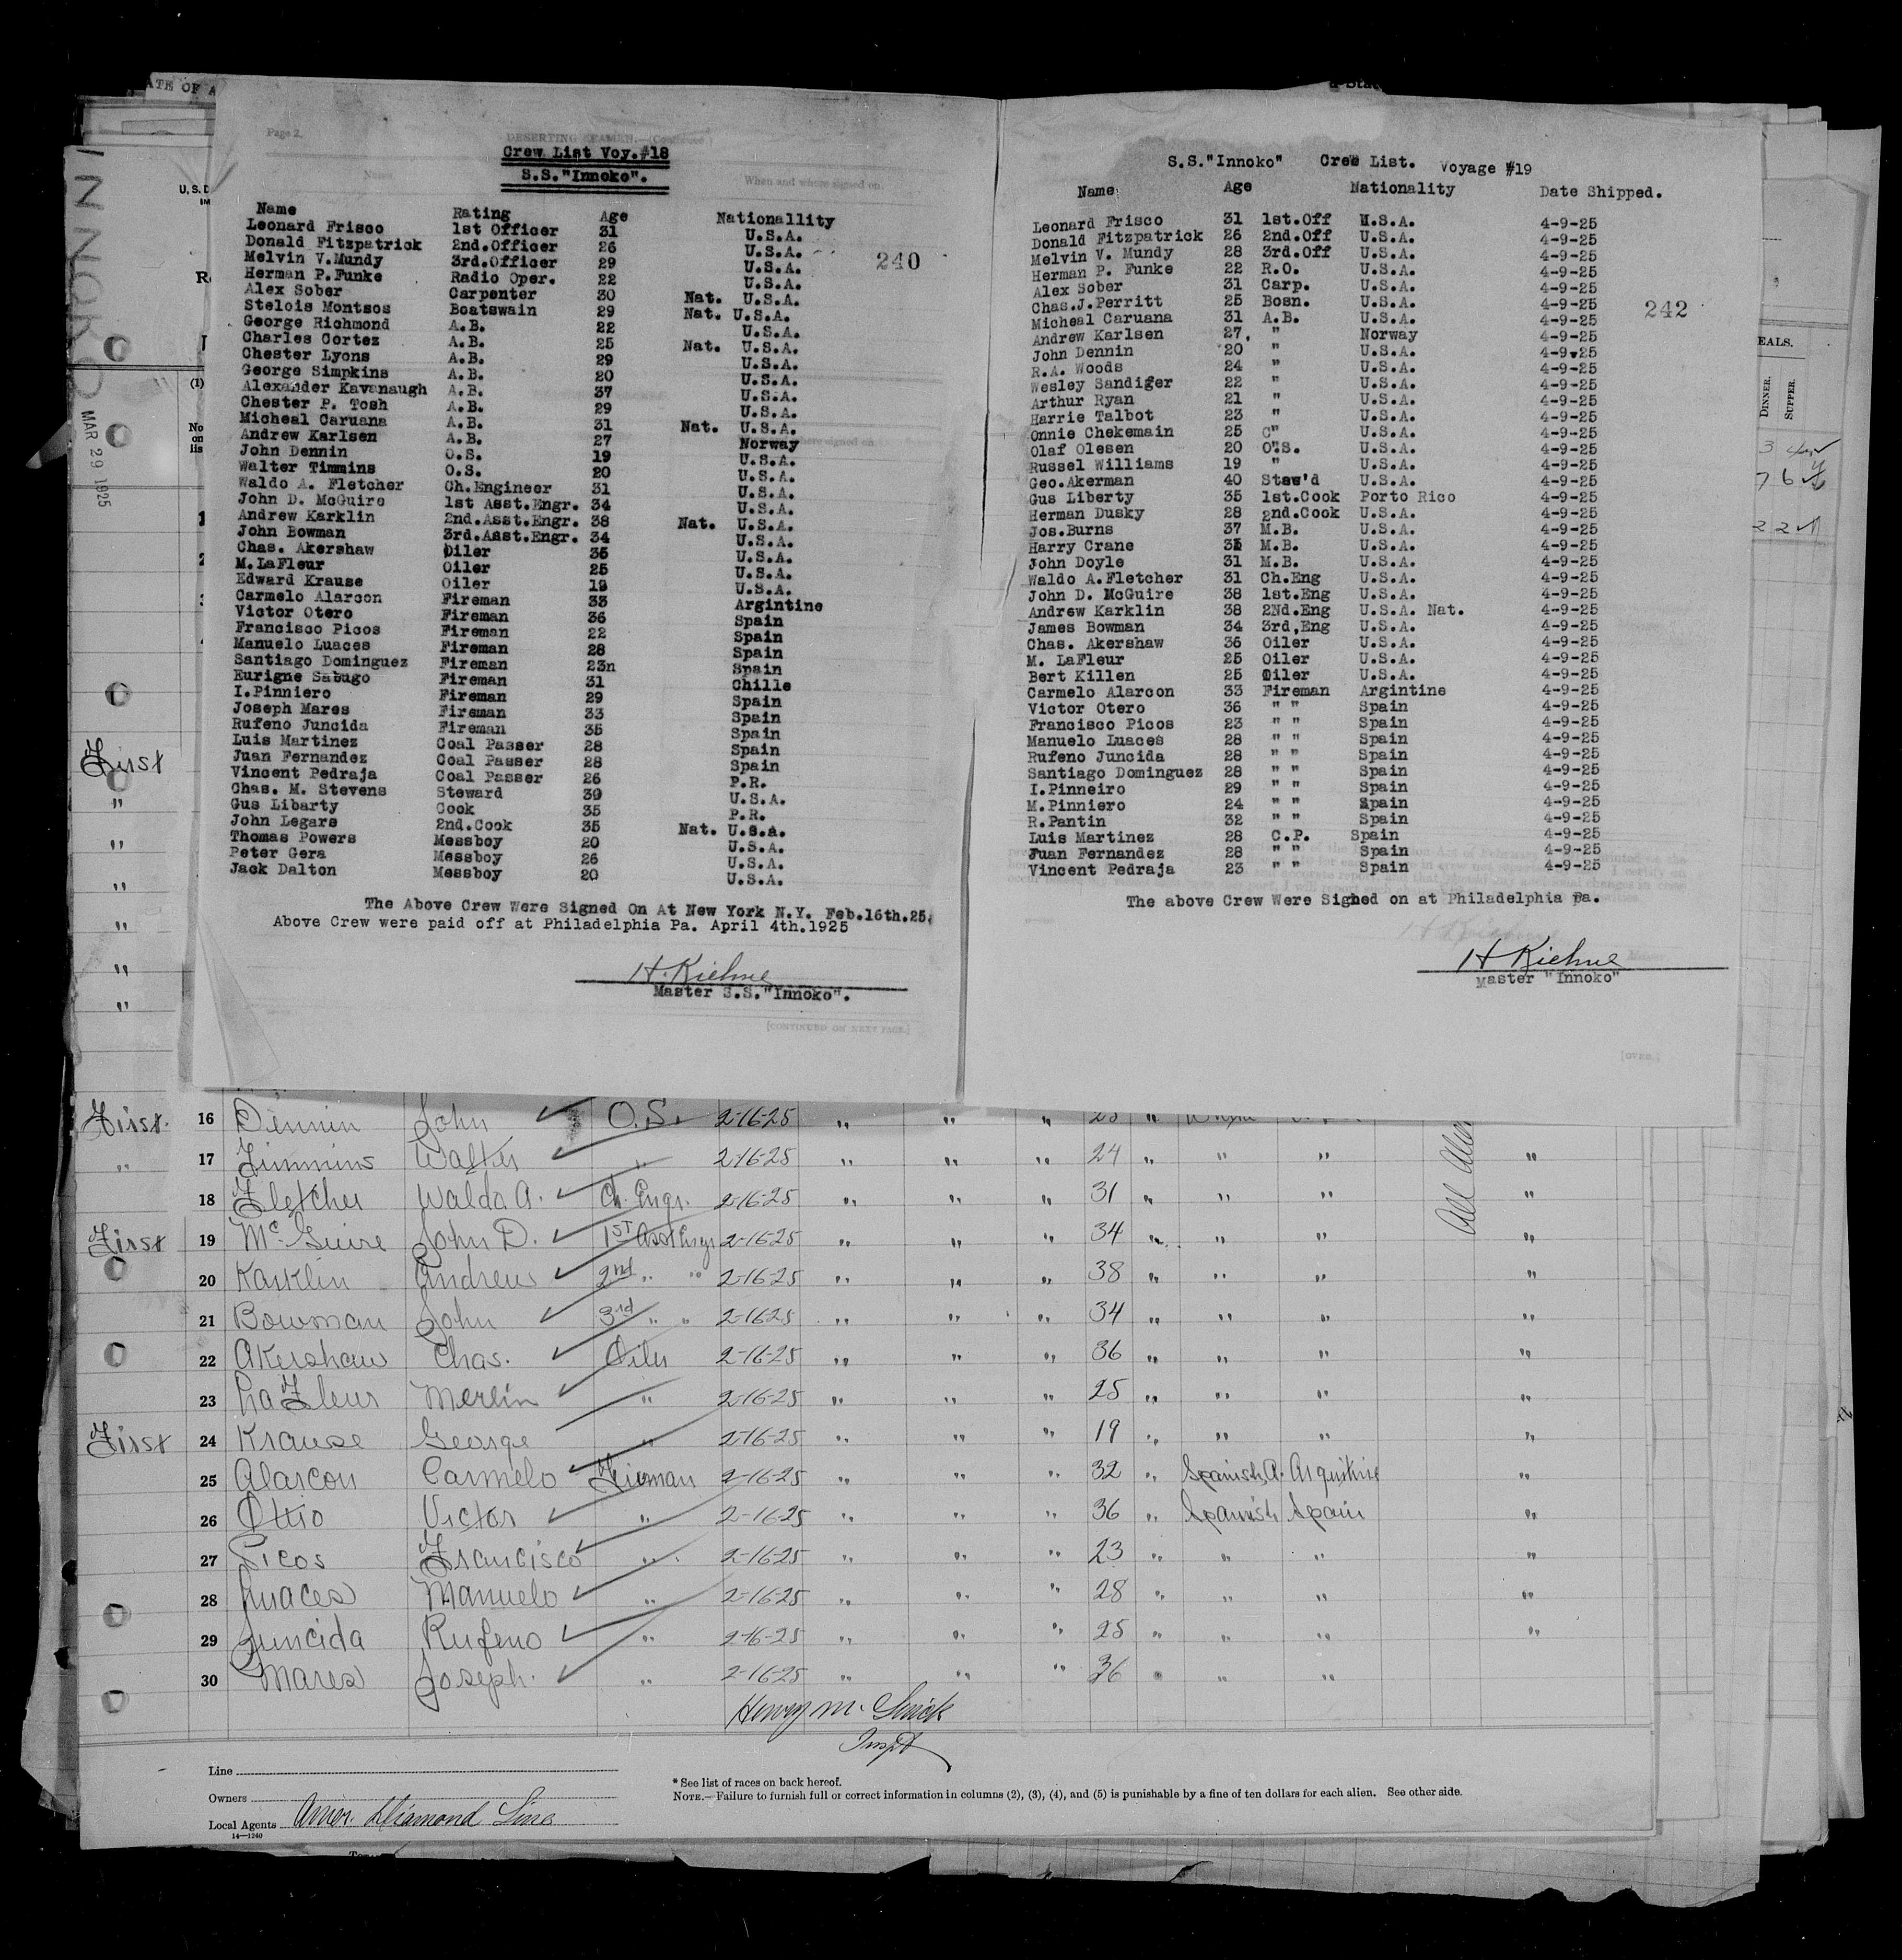 ATE OF A
INNOKO
MAR 29 1925
U.S.D
IM
(1)
No
on
lis
Page 2.
Crew List Voy.#18
S.S."Innoko".
Name
When and where signed on.
240
Name Rating Age Nationallity
Leonard Frisco 1st Officer 31 U.S.A.
Donald Fitzpatrick 2nd.Officer 26 U.S.A.
Melvin V.Mundy 3rd.Officer 29 U.S.A.
Herman P.Funke Radio Oper. 22 U.S.A.
Alex Sober Carpenter 30 Nat. U.S.A.
Stelois Montsos Boatswain 29 Nat. U.S.A.
George Richmond A.B. 22 U.S.A.
Charles Cortez A.B. 25 Nat. U.S.A.
Chester Lyons A.B. 29 U.S.A.
George Simpkins A.B. 20 U.S.A.
Alexander Kavanaugh A.B. 37 U.S.A.
Chester P. Tosh A.B. 29 U.S.A.
Micheal Caruana A.B. 31 Nat. U.S.A.
Andrew Karlsen A.B. 27 Norway
John Dennin O.S. 19 U.S.A.
Walter Timmins O.S. 20 U.S.A.
Waldo A. Fletcher Ch.Engineer 31 U.S.A.
John D. McGuire 1st Asst.Engr. 34 U.S.A.
Andrew Karklin 2nd.Asst.Engr. 38 Nat. U.S.A.
John Bowman 3rd.Asst.Engr. 34 U.S.A.
Chas. Akershaw Oiler 36 U.S.A.
M.LaFleur Oiler 25 U.S.A.
Edward Krause Oiler 19 U.S.A.
Carmelo Alarcon Fireman 33 Argintine
Victor Otero Fireman 36 Spain
Francisco Picos Fireman 22 Spain
Manuelo Luaces Fireman 28 Spain
Santiago Dominguez Fireman 23n Spain
Eurigne Sabugo Fireman 31 Chille
I.Pinniero Fireman 29 Spain
Joseph Mares Fireman 33 Spain
Rufeno Juncida Fireman 35 Spain
Luis Martinez Coal Passer 28 Spain
Juan Fernandez Coal Passer 28 Spain
Vincent Pedraja Coal Passer 26 P.R.
Chas. M. Stevens Steward 39 U.S.A.
Gus Libarty Cook 35 P.R.
John Legars 2nd.Cook 35 Nat. U.s.a.
Thomas Powers Messboy 20 U.S.A.
Peter Gera Messboy 26 U.S.A.
Jack Dalton Messboy 20 U.S.A.
The Above Crew Were Signed On At New York N.Y. Feb.16th.25.
Above Crew were paid off at Philadelphia Pa. April 4th.1925
H. Kiehne
Master S.S."Innoko".
[CONTINUED ON NEXT PAGE.]
S.S."Innoko" Cree List. Voyage #19
Name Age Nationality Date Shipped.
242
Leonard Frisco 31 1st.Off U.S.A. 4-9-25
Donald Fitzpatrick 26 2nd.Off U.S.A. 4-9-25
Melvin V. Mundy 28 3rd.Off U.S.A. 4-9-25
Herman P. Funke 22 R.O. U.S.A. 4-9-25
Alex Sober 31 Carp. U.S.A. 4-9-25
Chas.J.Perritt 25 Bosn. U.S.A. 4-9-25
Micheal Caruana 31 A.B. U.S.A. 4-9-25
Andrew Karlsen 27, " Norway 4-9-25
John Dennin 20 " U.S.A. 4-9-25
R.A. Woods 24 " U.S.A. 4-9-25
Wesley Sandifer 22 " U.S.A. 4-9-25
Arthur Ryan 21 " U.S.A. 4-9-25
Harrie Talbot 23 " U.S.A. 4-9-25
Onnie Chekemain 25 C" U.S.A. 4-9-25
Olaf Olesen 20 O.S. U.S.A. 4-9-25
Russel Williams 19 " U.S.A. 4-9-25
Geo.Akerman 40 Stew'd U.S.A. 4-9-25
Gus Liberty 35 1st.Cook Porto Rico 4-9-25
Herman Dusky 28 2nd.Cook U.S.A. 4-9-25
Jos.Burns 37 M.B. U.S.A. 4-9-25
Harry Crane M.B. U.S.A. 4-9-25
John Doyle 31 M.B. U.S.A. 4-9-25
Waldo A.Fletcher 31 Ch.Eng U.S.A. 4-9-25
John D. McGuire 38 1st.Eng U.S.A. 4-9-25
Andrew Karklin 38 2Nd.Eng U.S.A. Nat. 4-9-25
James Bowman 34 3rd,Eng U.S.A. 4-9-25
Chas. Akershaw 36 Oiler U.S.A. 4-9-25
M. LaFleur 25 Oiler U.S.A. 4-9-25
Bert Killen 25 Oiler U.S.A. 4-9-25
Carmelo Alarcon 33 Fireman Argintine 4-9-25
Victor Otero 36 " " Spain 4-9-25
Francisco Picos 23 " " Spain 4-9-25
Manuelo Luaces 28 " " Spain 4-9-25
Rufeno Juncida 28 " " Spain 4-9-25
Santiago Dominguez 28 " " Spain 4-9-25
I.Pinneiro 29 " " Spain 4-9-25
M.Pinniero 24 " " Spain 4-9-25
R.Pantin 32 " " Spain 4-9-25
Luis Martinez 28 C.P. Spain 4-9-25
Juan Fernandez 28 " " Spain 4-9-25
Vincent Pedraja 23 " " Spain 4-9-25
The above Crew Were Signed on at Philadelphia Pa.
H Kiehne
Master "Innoko"
[OVER.]
EALS.
DINNER.
SUPPER.
First
"
"
"
"
"
"
First. 16 Dennin John O.S. 2-16-25 " " " 23 "
" 17 Timmins Walter " 2-16-25 " " " 24 " " " "
18 Fletcher Waldo A. Ch. Engr. 2-16-25 " " " 31 " " " "
First 19 McGuire John D. 1st Asst Engr 2-16-25 " " " 34 " " " "
20 Karklin Andrew 2nd " " 2-16-25 " " " 38 " " " "
21 Bowman John 3rd " " 2-16-25 " " " 34 " " " "
22 Akershaw Chas. Oiler 2-16-25 " " " 36 " " " "
23 LaFleur Merlin " 2-16-25 " " " 25 " " " "
First 24 Krause George " 2-16-25 " " " 19 " " " "
25 Alarcon Carmelo Fireman 2-16-25 " " " 32 " Spanish A. Argentine "
26 Ottio Victor " 2-16-25 " " " 36 " Spanish Spain "
27 Picos Francisco " 2-16-25 " " " 23 " " " "
28 Luaces Manuelo " 2-16-25 " " " 28 " " " "
29 Juncida Rufeno " 2-16-25 " " " 25 " " " "
30 Mares Joseph. " 2-16-25 " " " 36 " " "
Inspt
Line
Owners
Local Agents Amer. Diamond Line
14—1240
* See list of races on back hereof.
NOTE.—Failure to furnish full or correct information in columns (2), (3), (4), and (5) is punishable by a fine of ten dollars for each alien. See other side.